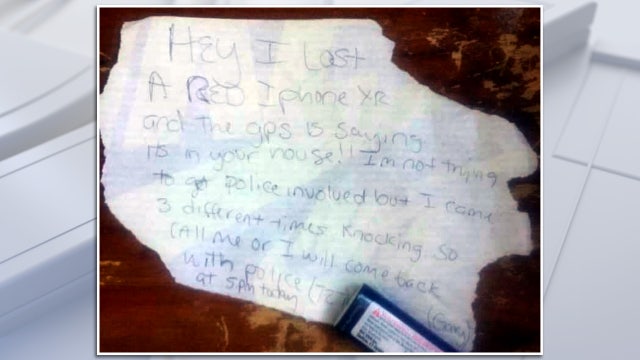 Hey I Lost
A RED Iphone XR
and the gps is saying
its in your house!! Im not trying
to get police involved but I came
3 different times knocking. So
CAll me or I will come back
with police (727
at 5pm today
(Gary)